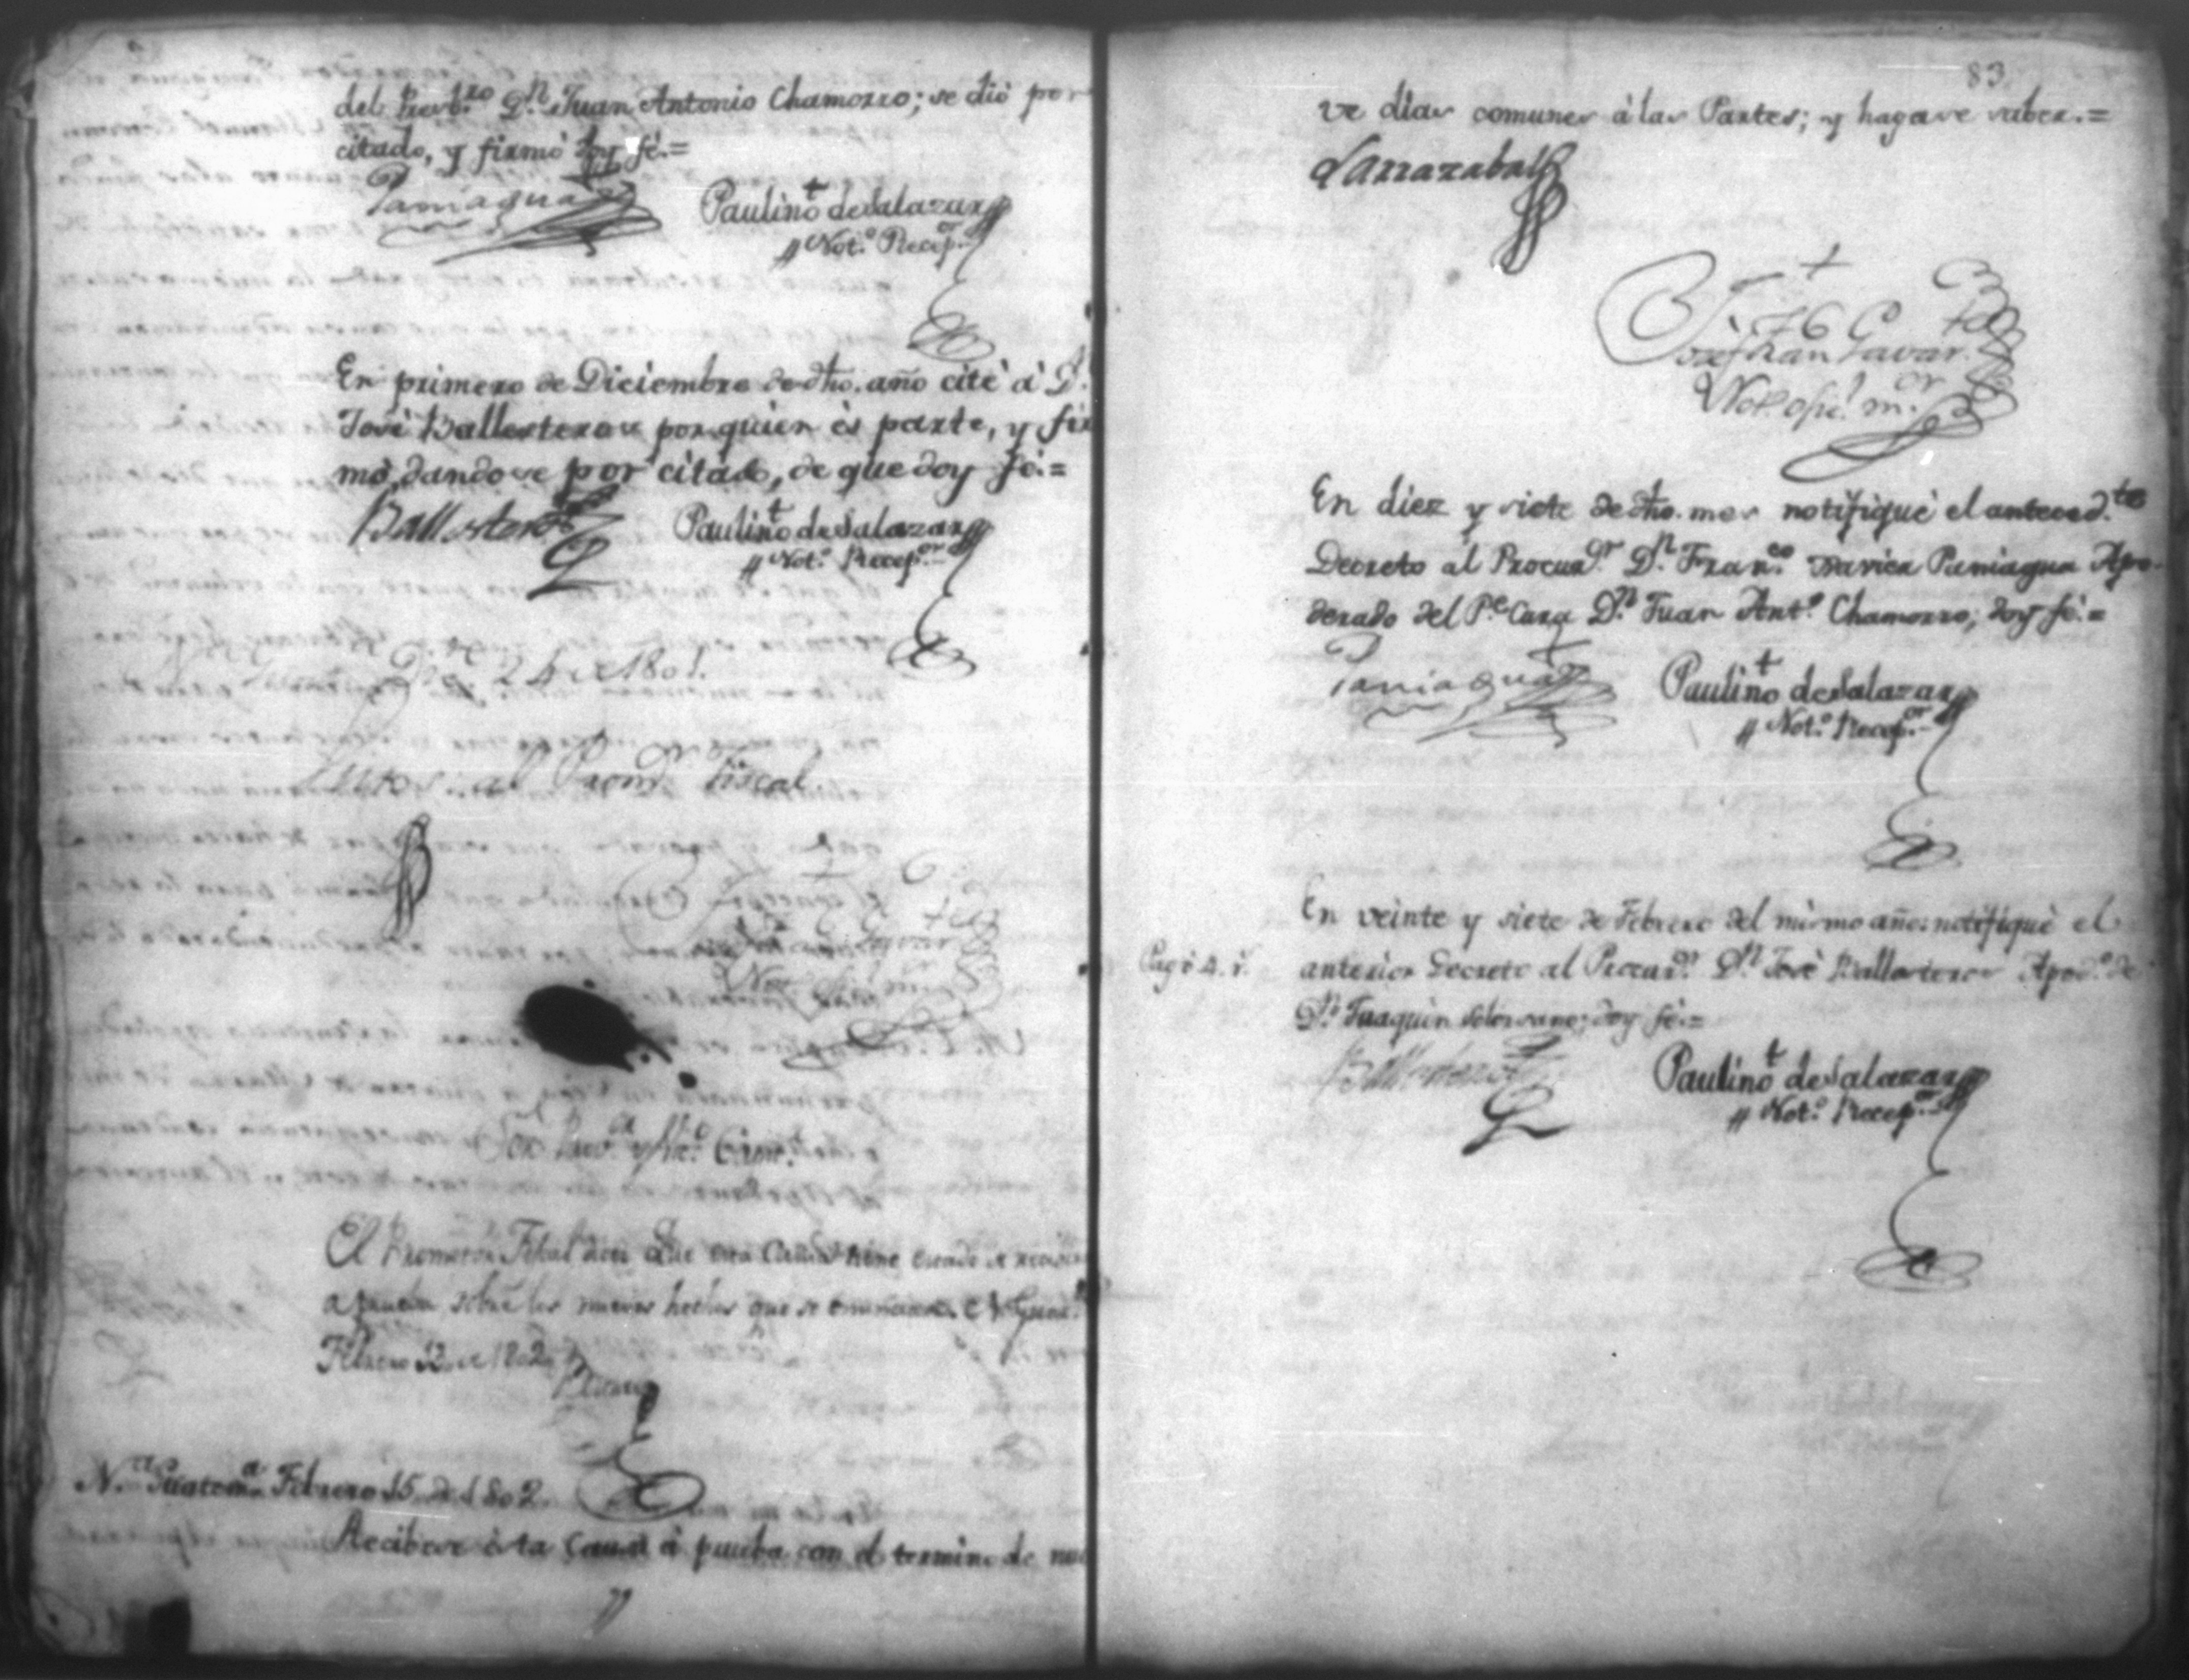 del Presb.ro D.n Juan Antonio Chamorro; se dió por
citado, y firmó doy fé.=
Paniagua
Paulino de Salazar
Not.o Recep.or
En primero de Diciembre de dho. año cité á D.
José Ballesteros por quien és parte, y fir
mó, dandose por citado, de que doy fé.=
Ballesteros
Paulino de Salazar
Not.o Recep.or
N.a Guat.a 24 de 1801.
Autos: al Prom.or Fiscal.
Not. ofic.l m.or
Sor. Prov.or y Vic.o Gen.l
El Promotor Fiscal dice Que esta Causa tiene estado de recivirse
a prueba sobre los nuevos hechos que se enuncian. N. Guat.a
Febrero 13 de 1802.
N.a Guatem.a Febrero 15 de 1802.
Recibese ésta Causa á prueba con el termino de nue
83
ve dias comunes á las Partes; y hagase saber.=
Larrazabal
Josef Fran Gavar.
Not. ofic.l m.or
En diez y siete de dho. mes notifiqué el anteced.te
Decreto al Procur.or D.n Fran.co Xavier Paniagua Apo-
derado del P.e Cura D.n Juan Ant.o Chamorro; doy fé.=
Paniagua
Paulino de Salazar
Not.o Recep.or
En veinte y siete de Febrero del mismo año: notifiqué el
Pagó 4. r.
anterior Decreto al Procur.or D.n José Ballesteros Apod.o de
D.n Juaquin Solorzano; doy fé.=
Ballesteros
Paulino de Salazar
Not.o Recep.or